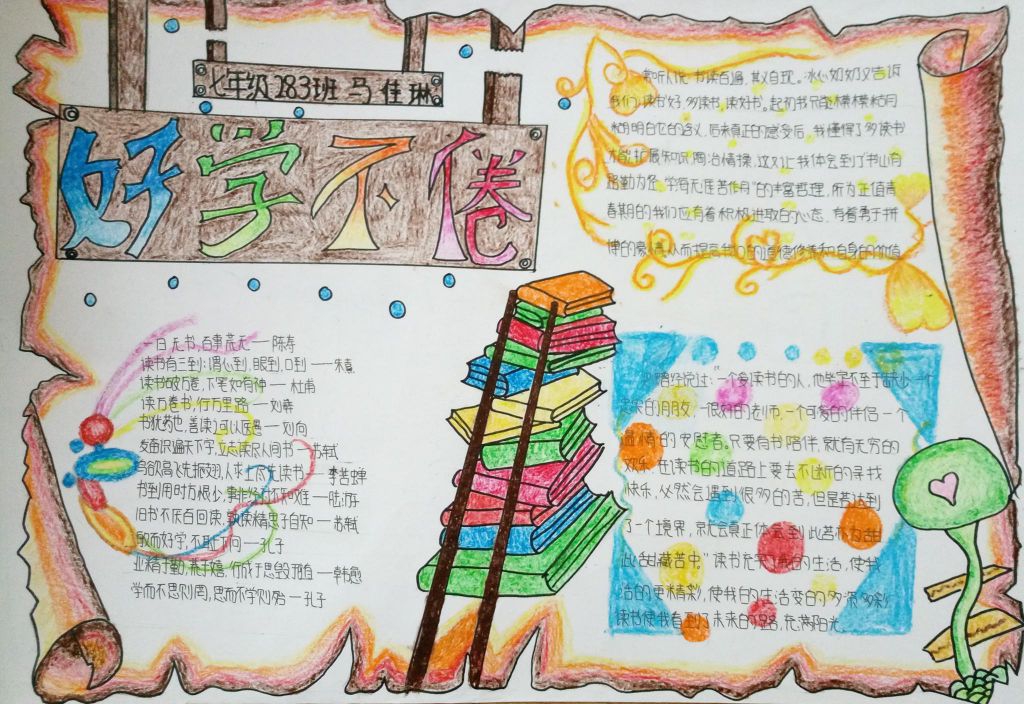 七年级283班 马佳琳
好学不倦
常听人说,书读百遍,其义自现。冰心奶奶又告诉
我们:读书好,多读书,读好书。起初我只能模模糊糊
明白它的含义,后来真正的感受后,我懂得了多读书
才能扩展知识,陶冶情操,这又让我体会到了"书山有
路勤为径,学海无涯苦作舟"的丰富哲理,所为正值青
春期的我们应有着积极进取的心态,有着勇于拼
博的豪情,从而提高我们的道德修养和自身的价值
一日无书,百事荒无——陈寿
读书有三到:谓心到,眼到,口到——朱熹
读书破万卷,下笔如有神——杜甫
读万卷书,行万里路——刘彝
书犹药也,善读可以医愚——刘向
发奋识遍天下字,立志读尽人间书——苏轼
鸟欲高飞先振翅,人求上尽先读书——李苦蝉
书到用时方恨少,事非经过不知难——陆游
旧书不厌百回读,熟读精思子自知——苏轼
敏而好学,不耻下问——孔子
业精于勤,荒于嬉,行成于思毁于随——韩愈
学而不思则罔,思而不学则殆——孔子
曾经说过:"一个爱读书的人,他必定不至于缺少一个
的朋友,一很好的老师,一个可爱的伴侣一个
情的安慰者。只要有书陪伴就有无穷的
欢乐 在读书的道路上要去不断的寻找
快乐,必然会遇到很多的苦,但是若达到
了一个境界,就会真正体会到"此苦林为甜
此甜藏苦中"读书充实了我的生活,使我
活的更精彩,使我的生活变的多滋多彩
读书使我看到了未来的路,充满阳光。